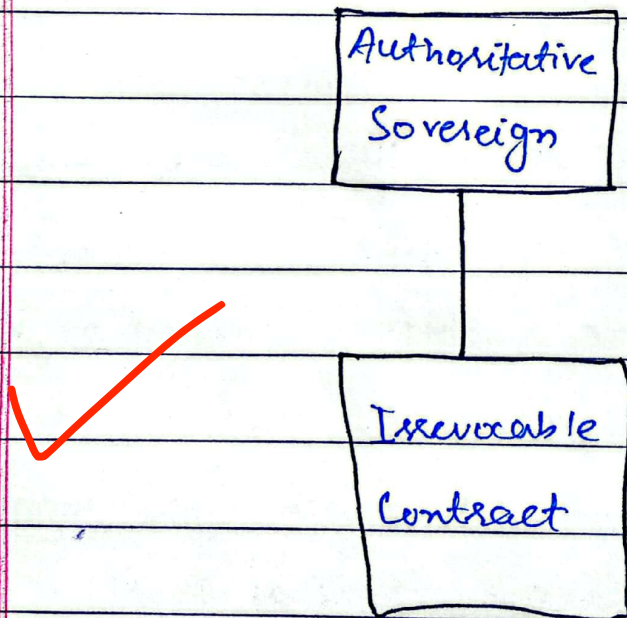 Authoritative
Sovereign
Irrevocable
Contract